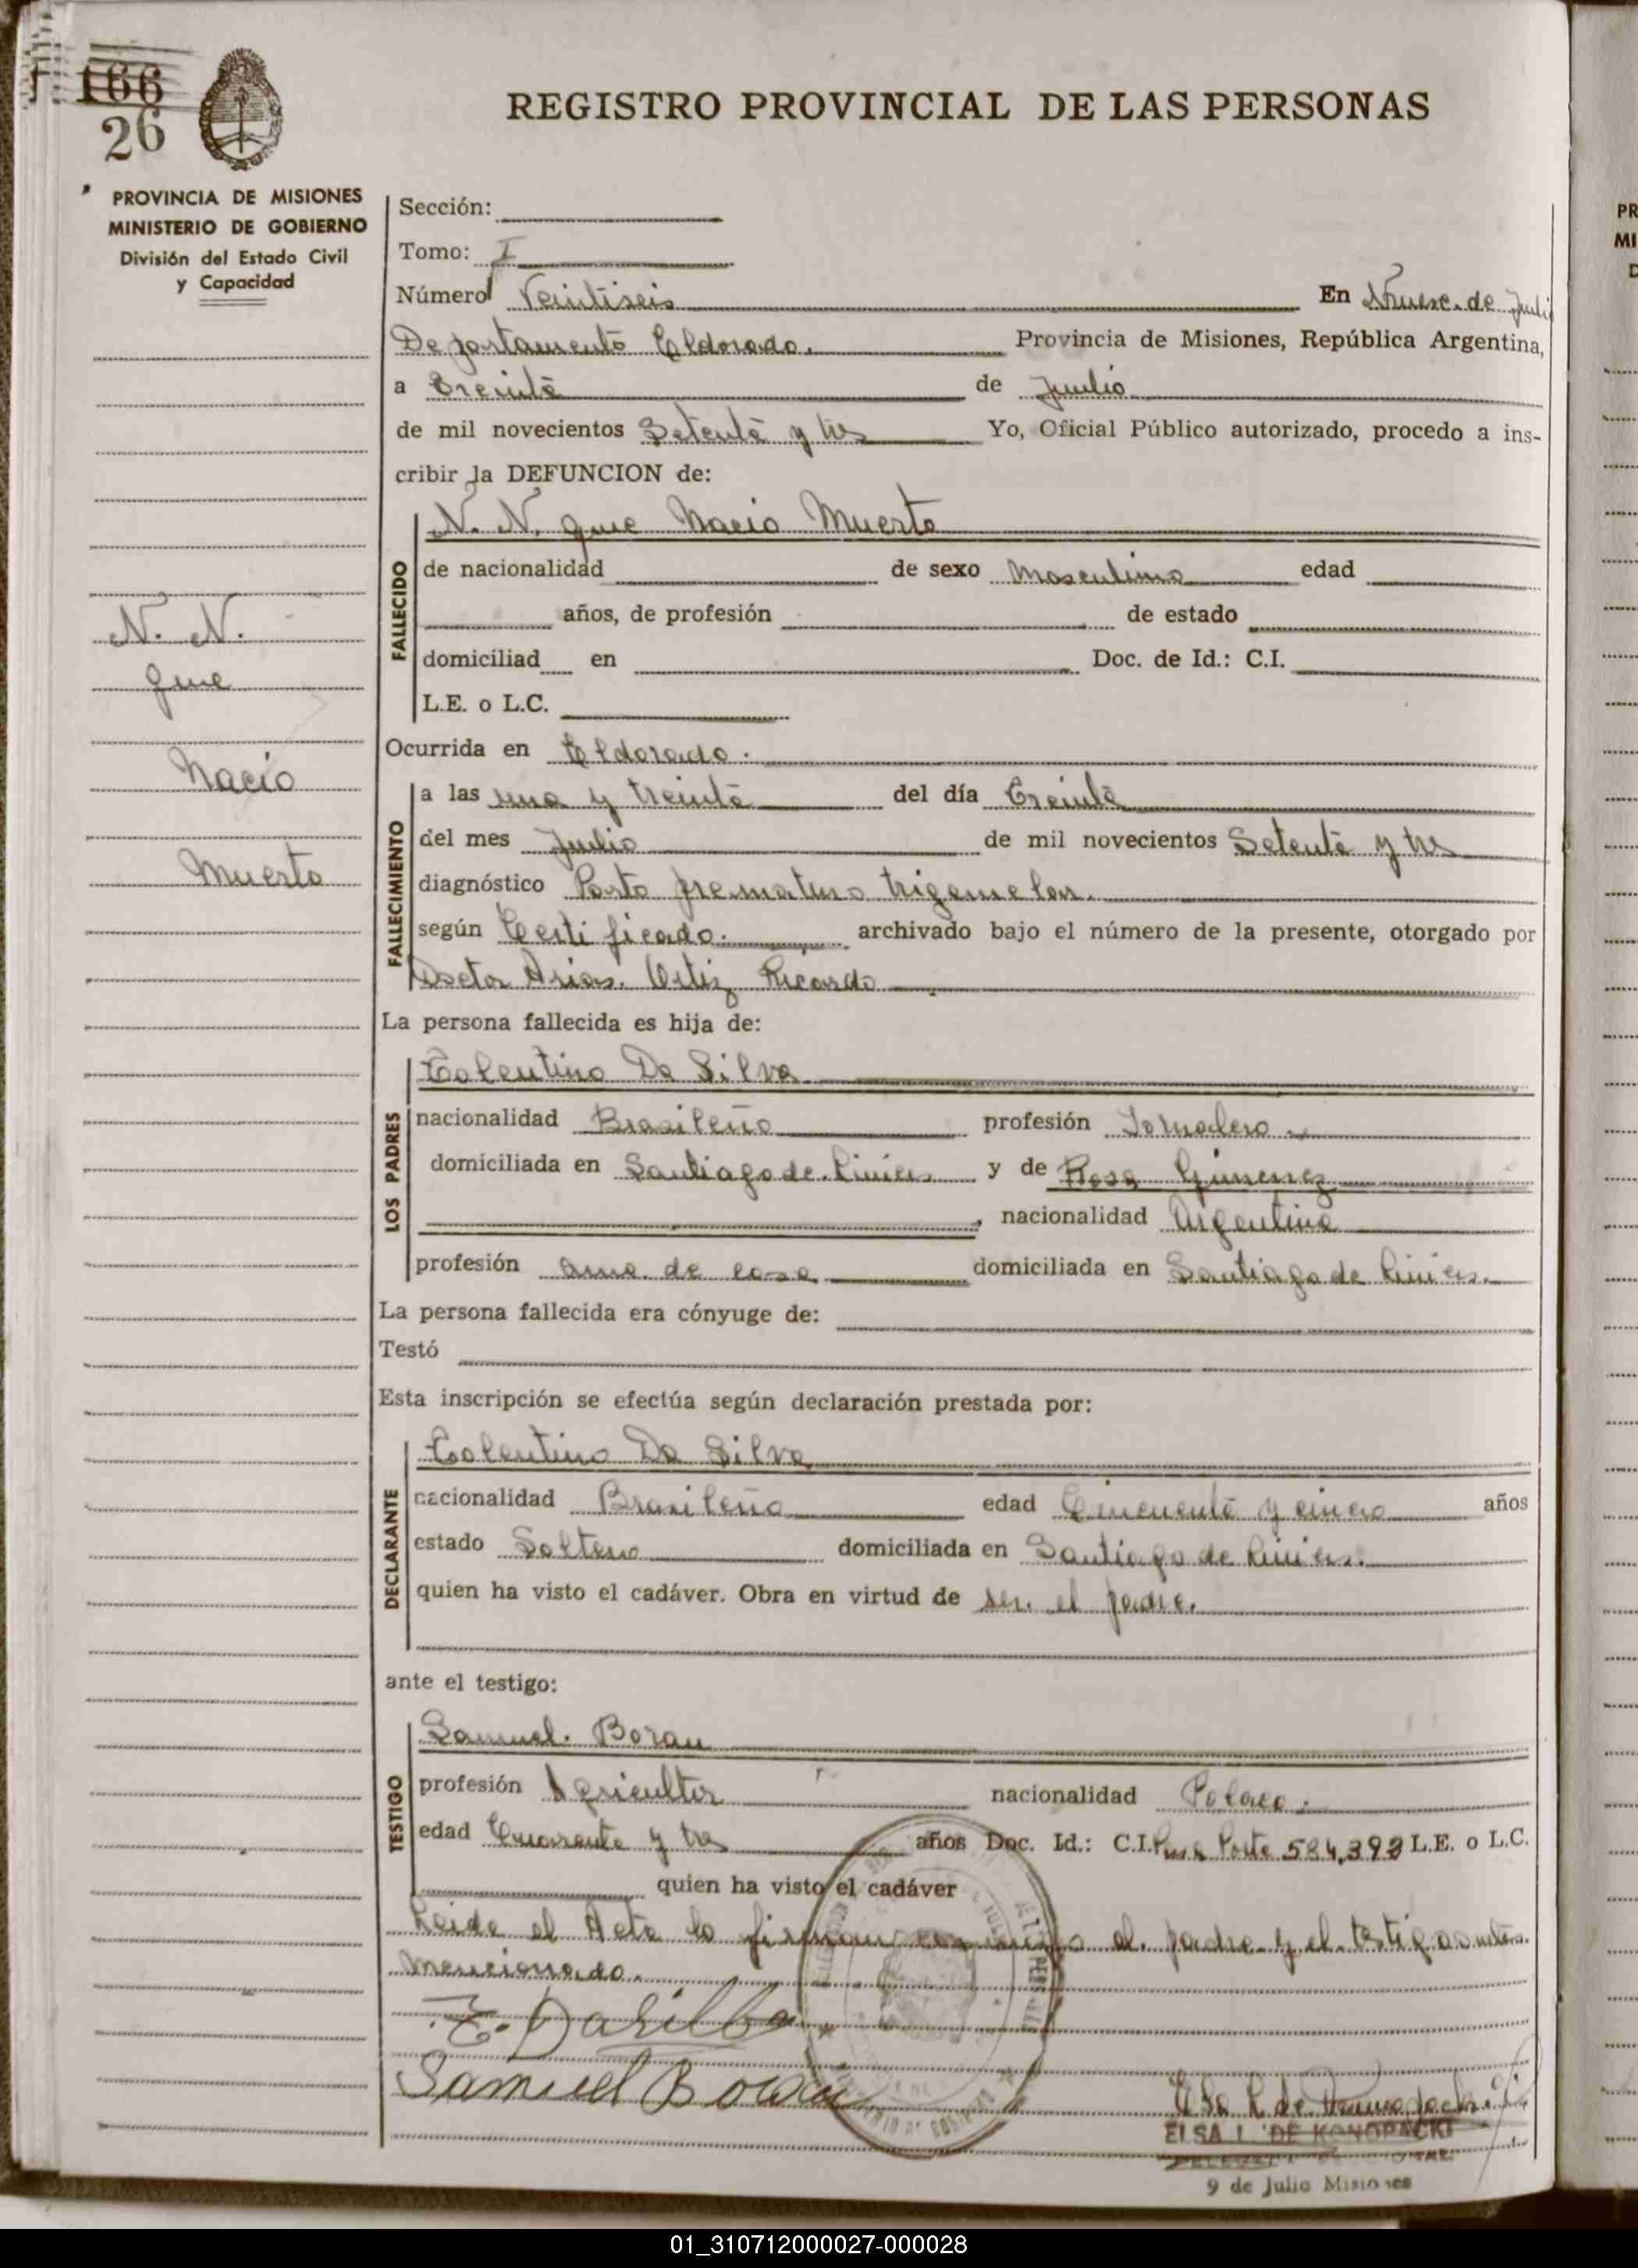 166
26
REGISTRO PROVINCIAL DE LAS PERSONAS
PROVINCIA DE MISIONES
MINISTERIO DE GOBIERNO
División del Estado Civil
y Capacidad
Sección:
Tomo: I
Número Veintiseis En Nueve de Juli
Departamento Eldorado. Provincia de Misiones, República Argentina,
a Treinta de Julio
de mil novecientos Setenta y tres Yo, Oficial Público autorizado, procedo a ins-
cribir la DEFUNCION de:
N. N. que Nacio Muerto
FALLECIDO
de nacionalidad de sexo Masculino edad
años, de profesión de estado
domiciliad en Doc. de Id.: C.I.
L.E. o L.C.
N. N.
que
Nacio
Muerto
Ocurrida en Eldorado.
FALLECIMIENTO
a las una y treinta del día Treinta
del mes Julio de mil novecientos Setenta y tres
diagnóstico Parto prematuro trigemelar.
según Certificado. archivado bajo el número de la presente, otorgado por
Doctor Arias. Ortiz Ricardo
La persona fallecida es hija de:
LOS PADRES
Tolentino Da Silva
nacionalidad Brasileño profesión Jornalero
domiciliada en Santiago de Liniers y de Rosa Gimenez
, nacionalidad Argentina
profesión ama de casa domiciliada en Santiago de Liniers.
La persona fallecida era cónyuge de:
Testó
Esta inscripción se efectúa según declaración prestada por:
DECLARANTE
Tolentino Da Silva
nacionalidad Brasileño edad Cincuenta y cinco años
estado Soltero domiciliada en Santiago de Liniers.
quien ha visto el cadáver. Obra en virtud de ser el padre.
ante el testigo:
TESTIGO
Samuel. Boran
profesión Agricultor nacionalidad Polaco.
edad Cuarenta y tres años Doc. Id.: C.I. Pasa Porte 584,393 L.E. o L.C.
quien ha visto el cadáver
Leida el Acta la firman conmigo el padre y el testigo antes
mencionado.
Samuel Boran
ELSA L. DE KONOPACKI
9 de Julio Misiones
01_310712000027-000028